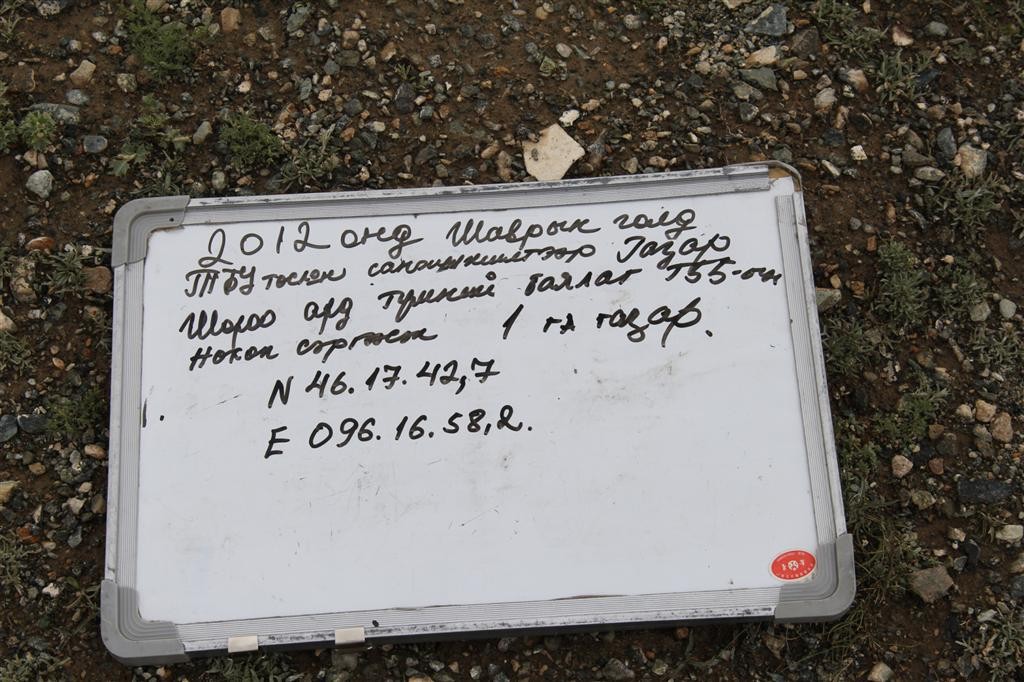 2012 онд Шаврын голд
ТБУ төсөн санхүүжилтээр Газар
Шороо ард түмний баялаг ТББ-ын
Нөхөн сэргээсэн 1 га газар.
N 46.17.42,7
1.
E 096.16.58,2.